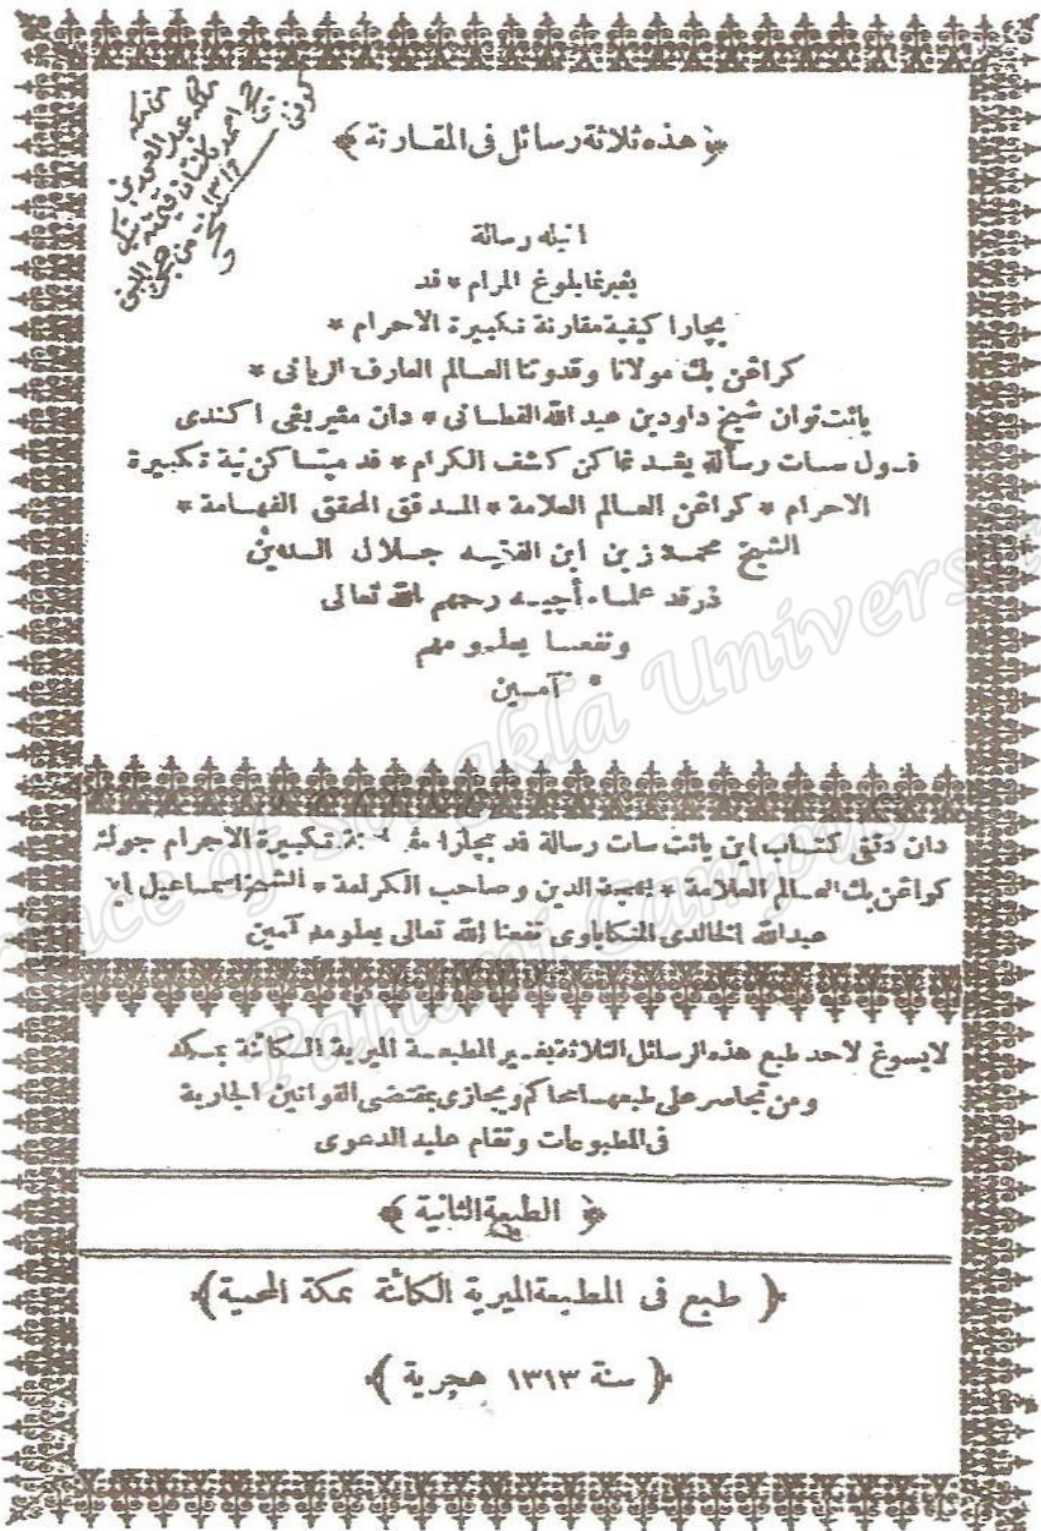 هذه ثلاثة رسائل فى المقارنة
انيله رسالة
يڠبرنما بلوغ المرام * ڤد
بچارا كيفية مقارنة تكبيرة الاحرام *
كراڠن بݢ مولانا وقدوتنا العالم العارف الربانى *
يائت توان شيخ داود بن عبد الله الفطانى * دان مڠيريڠى اكندى
ڤول سات رسالة يڠد نماكن كشف الكرام * ڤد مپتاكن نية تكبيرة
الاحرام * كراڠن العالم العلامة * المدقق المحقق الفهامة *
الشيخ محمد زين ابن الفقيه جلال الدين
درڤد علماء أچيه رحمهم الله تعالى
ونفعنا بعلومهم
* آمين
دان دتڤى كتاب اين يائت سات رسالة ڤد بچارا تكبيرة الاحرام جوݢ
كراڠن بݢ العالم العلامة * الدين وصاحب الكرامة * الشيخ اسماعيل ابن
عبدالله الخالدى المنكاباوى نفعنا الله تعالى بعلومه آمين
لايسوغ لاحد طبع هذه الرسائل الثلاثة بغير المطبعة الميرية الكائنة بمكه
ومن تجاسر على طبعها يحاكم ويجازى بمقتضى القوانين الجارية
فى المطبوعات وتقام عليه الدعوى
الطبعة الثانية
( طبع فى المطبعة الميرية الكائنة بمكة المحمية )
( سنة ١٣١٣ هجرية )
Prince of Songkla University
Pattani Campus